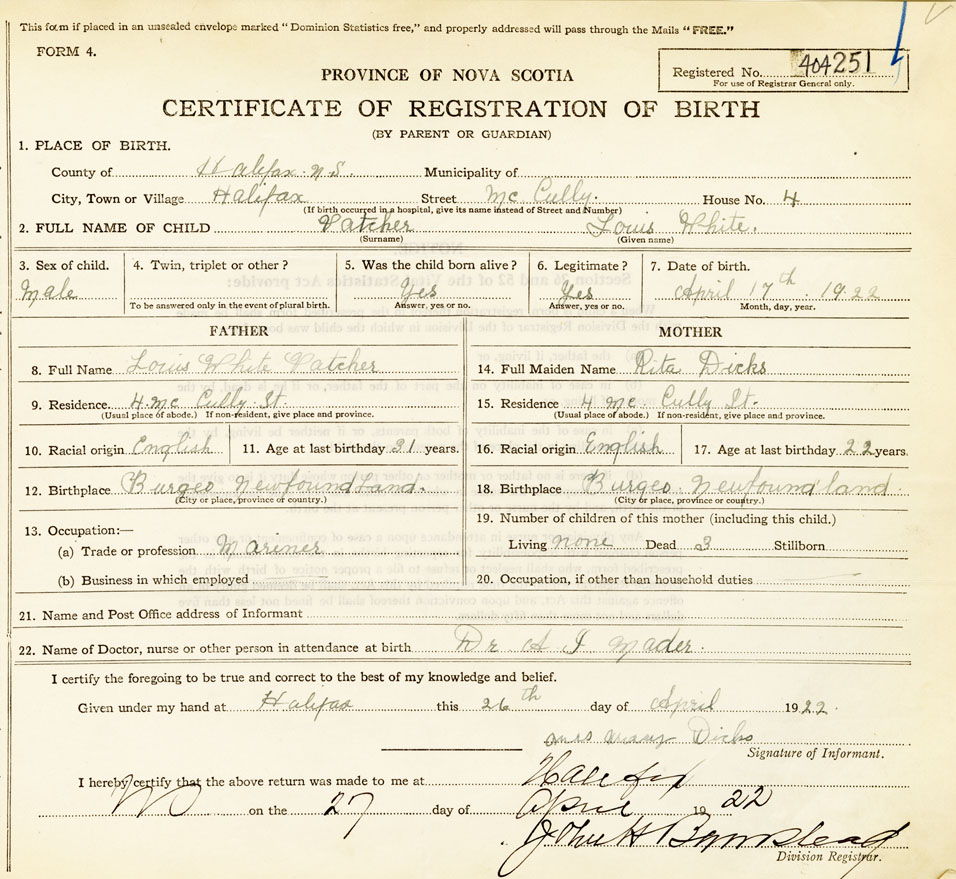 This form if placed in an unsealed envelope marked "Dominion Statistics free," and properly addressed will pass through the Mails "FREE."
FORM 4.
Registered No. 404251
For use of Registrar General only.
PROVINCE OF NOVA SCOTIA
CERTIFICATE OF REGISTRATION OF BIRTH
(BY PARENT OR GUARDIAN)
1. PLACE OF BIRTH.
County of Halifax N.S. Municipality of
City, Town or Village Halifax Street Mc Cully. House No. 4
(If birth occurred in a hospital, give its name instead of Street and Number)
2. FULL NAME OF CHILD Vatcher Louis White.
(Surname) (Given name)
3. Sex of child. 4. Twin, triplet or other? 5. Was the child born alive? 6. Legitimate? 7. Date of birth.
Male Yes Yes April 17th 1922
To be answered only in the event of plural birth. Answer, yes or no. Answer, yes or no. Month, day, year.
FATHER MOTHER
8. Full Name Louis White Vatcher 14. Full Maiden Name Rita Dicks
9. Residence. 4 Mc Cully St. 15. Residence 4 Mc Cully St.
(Usual place of abode.) If non-resident, give place and province. (Usual place of abode.) If non-resident, give place and province.
10. Racial origin English 11. Age at last birthday 31 years. 16. Racial origin English 17. Age at last birthday 22 years.
12. Birthplace Burgeo Newfoundland. 18. Birthplace Burgeo Newfoundland
(City or place, province or country.) (City or place, province or country.)
13. Occupation:— 19. Number of children of this mother (including this child.)
(a) Trade or profession Mariner Living none Dead 3 Stillborn
(b) Business in which employed 20. Occupation, if other than household duties
21. Name and Post Office address of Informant
22. Name of Doctor, nurse or other person in attendance at birth Dr A I Mader.
I certify the foregoing to be true and correct to the best of my knowledge and belief.
Given under my hand at Halifax this 26th day of April 1922.
Mrs Dicks
Signature of Informant.
I hereby certify that the above return was made to me at Halifax
on the 27 day of April 1922
John H Barnstead
Division Registrar.